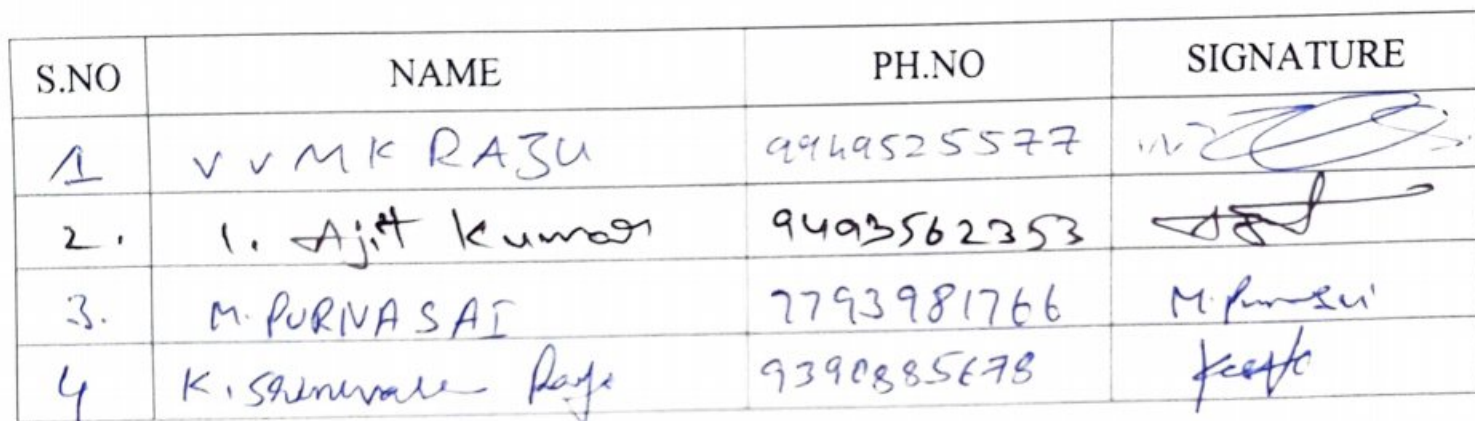 S.NO NAME PH.NO SIGNATURE
1 V V M K RAJU 9949525577
2. I. Ajit Kumar 9493562353 Ajit
3. M. PURNA SAI 7793981766 M. Purnasai
4 K. Srinivasa Raju